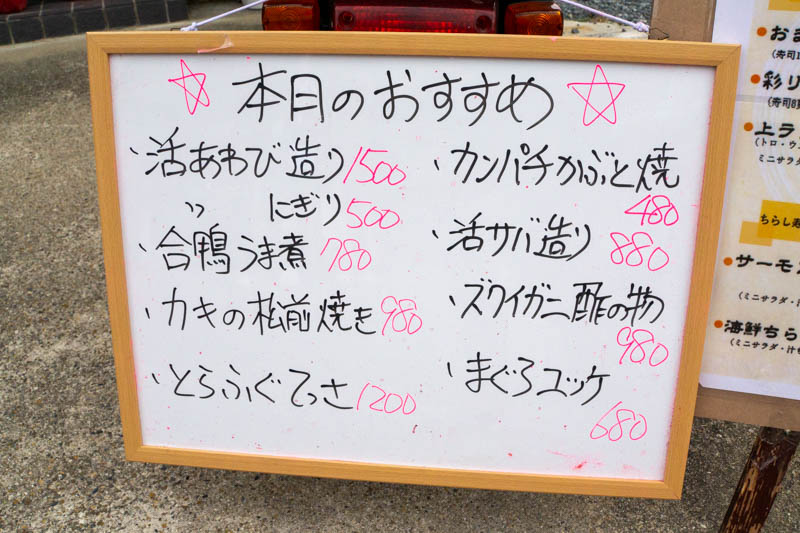 ☆本日のおすすめ☆
・活あわび造り 1500
〃 にぎり 500
・合鴨うま煮 780
・カキの松前焼き 980
・とらふぐてっさ 1200
・カンパチかぶと焼
480
・活サバ造り 880
・ズワイガニ酢の物
980
・まぐろユッケ
680
●おま
(寿司1
●彩り
(寿司8貫
●上ラ
(トロ・ウ
ミニサラダ
ちらし寿
●サーモ
(ミニサラダ・汁
●海鮮ちら
(ミニサラダ・汁